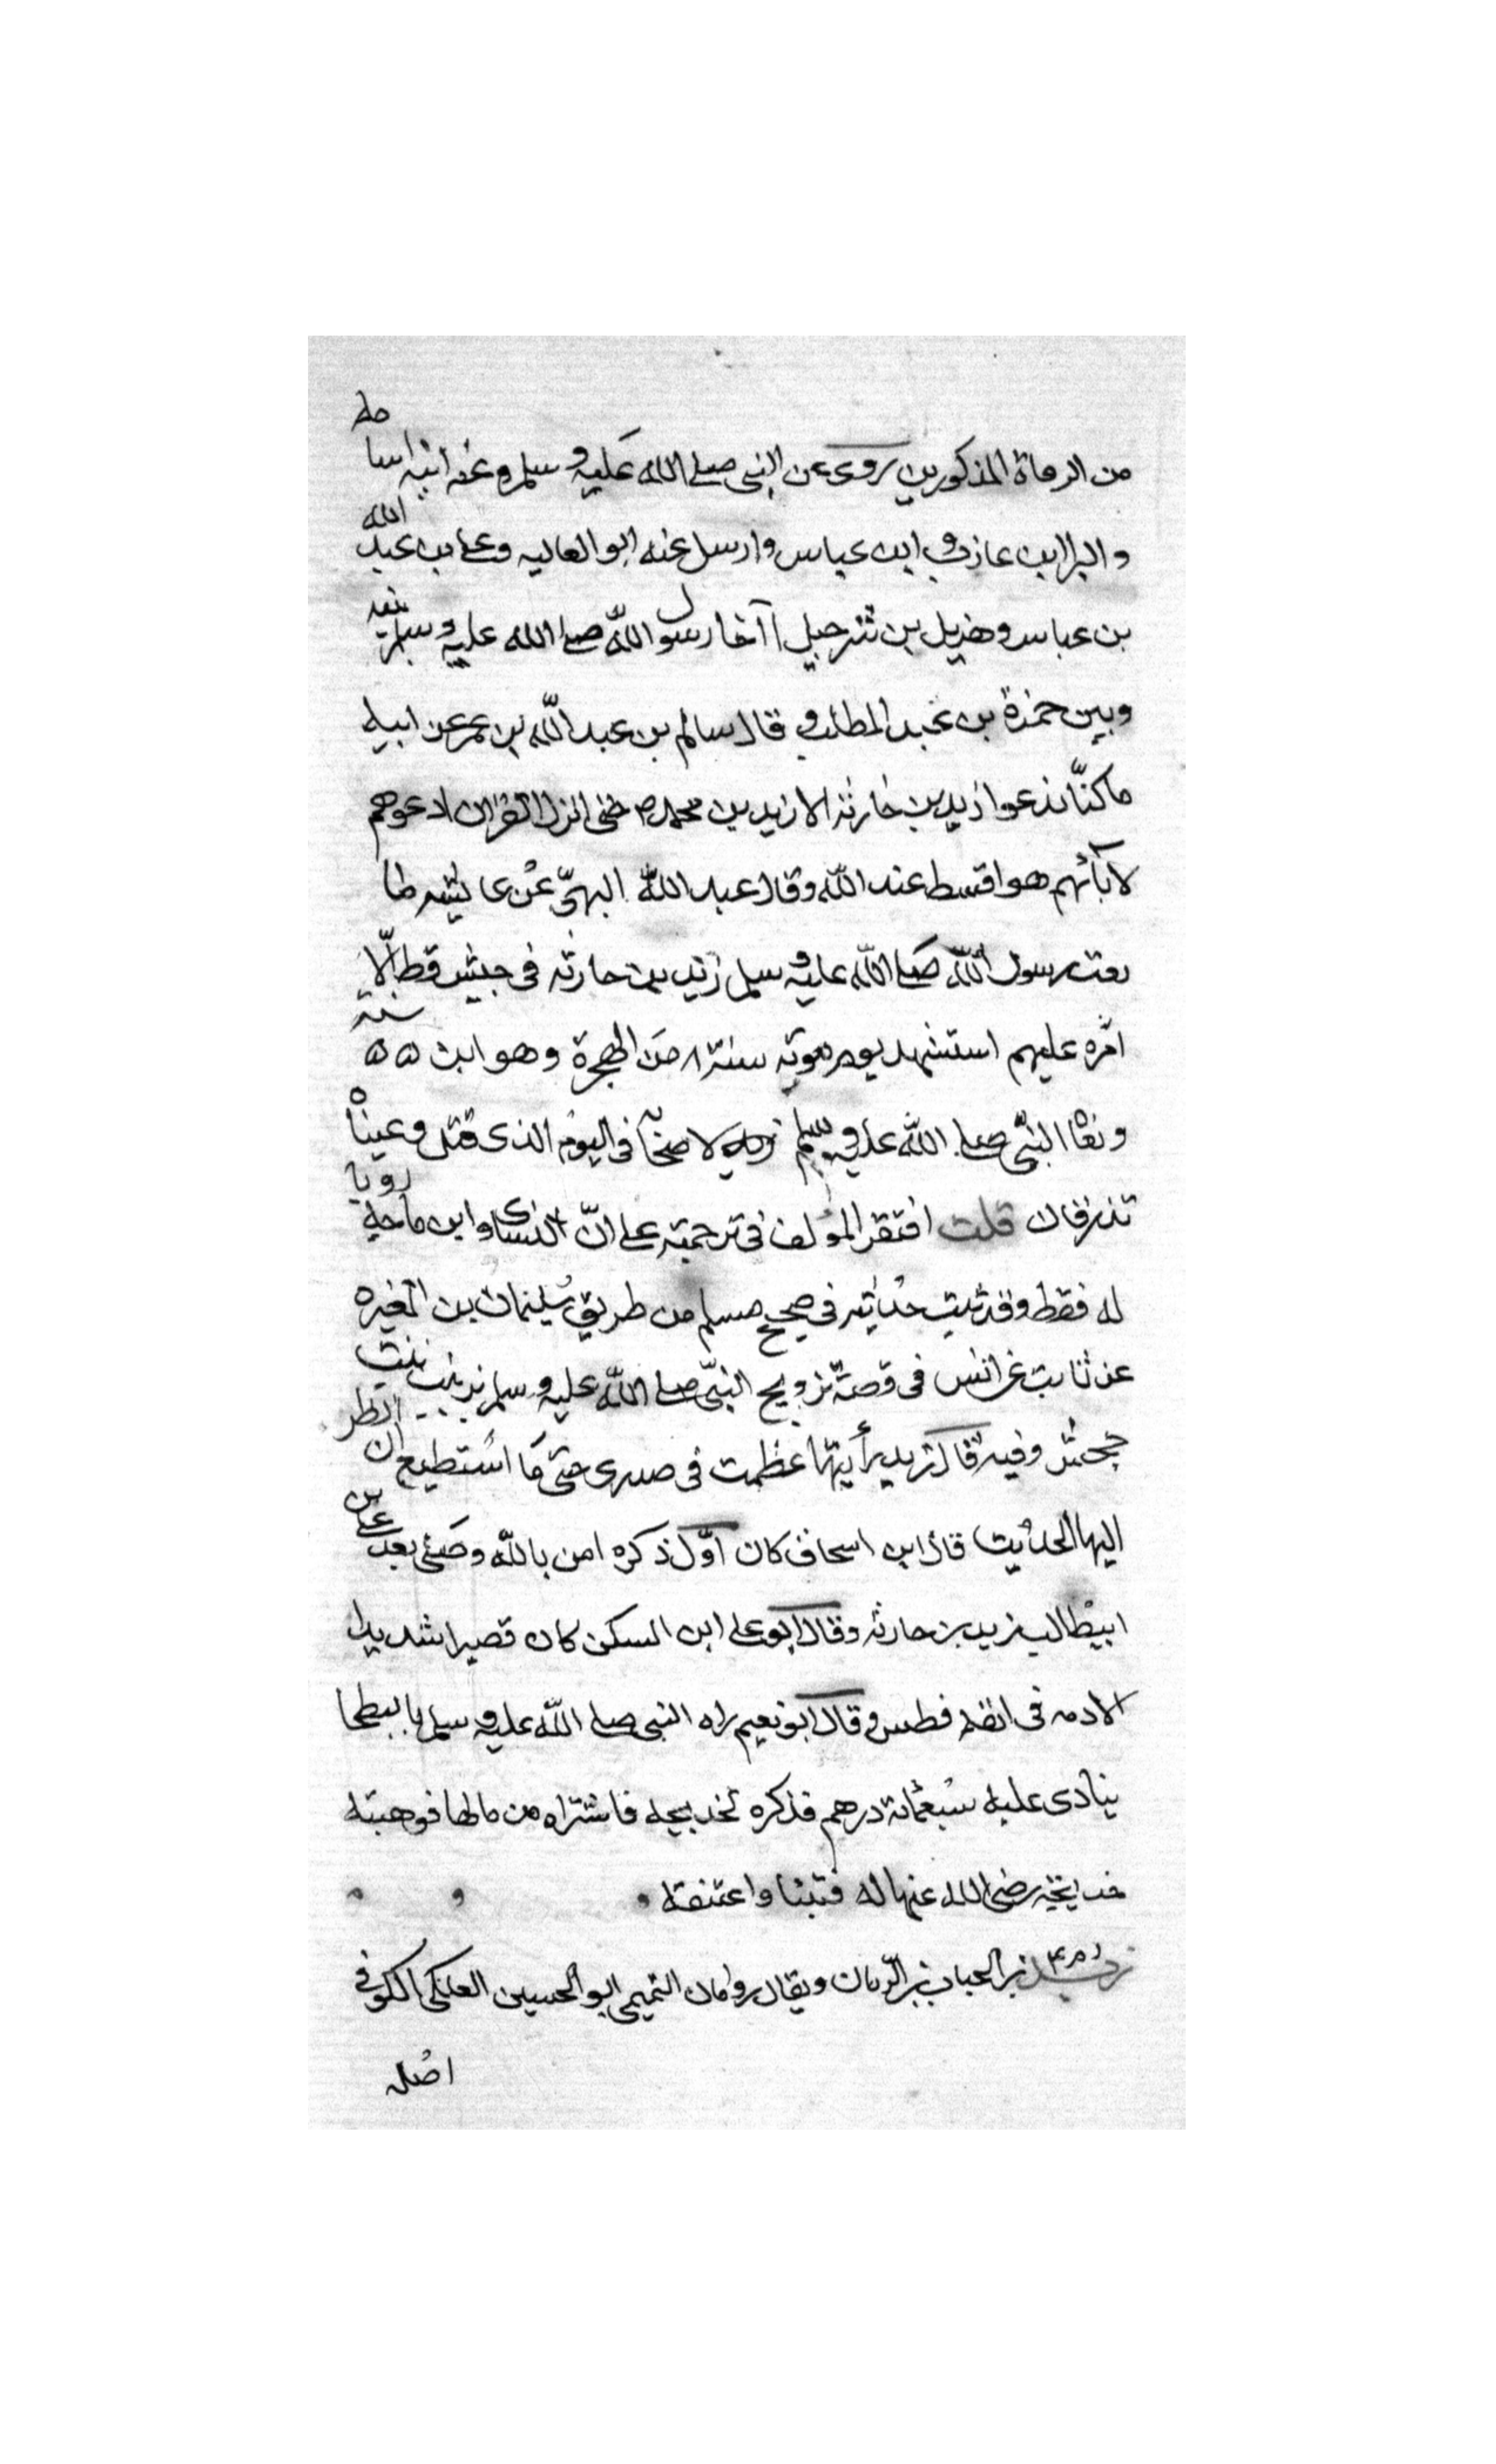 من الرماة المذكورين يروى عن النبى صلى الله عليه وسلم وعنه ابنه اسامه
والبرا ابن عازب وابن عباس وارسل عنه ابو العاليه وعلى بن عبد الله
بن عباس وهزيل بن شرحبيل آخا رسول الله صلى الله عليه وسلم بينه
وبين حمزة بن عبد المطلب وقال سالم بن عبد الله بن عمر عن ابيه
ما كنّا ندعوا زيد بن حارثه الا زيد بن محمد حتى انزل القران ادعوهم
لآبائهم هو اقسط عند الله وقال عبد الله البهىّ عن عايشه ما
بعث رسول الله صلى الله عليه وسلم زيد بن حارثه فى جيش قط الّا
امّره عليهم استشهد يوم موته سنة ٨ من الهجرة وهو ابن ٥٥ سنة
ونعا النبىّ صلى الله عليه وسلم لاصحابه فى اليوم الذى قتل وعيناه
تذرفان قلت اقتصر المؤلف فى ترجمته على انّ النسائى وابن ماجه رويا
له فقط وقد ثبت حديثه فى صحيح مسلم من طريق سليمان بن المغيره
عن ثابت عن انس فى قصة تزويج النبىّ صلى الله عليه وسلم زينب بنت
جحش وفيه قال زيد رأيتها عظمت فى صدرى حتى ما استطيع ان انظر
اليها الحديث قال ابن اسحاق كان اوّل ذكره امن بالله وصلى بعد على بن
ابيطالب زيد بن حارثه وقال ابو على ابن السكن كان قصيرا شديد
الادمه فى انفه فطس وقال ابو نعيم راه النبى صلى الله عليه وسلم بالبطحا
ينادى عليه سبعمائة درهم فذكره لخديجه فاشتراه من مالها فوهبته
خديجه رضى الله عنها له فتبنا واعتقه
زيد بن الحباب بن الرّيان ويقال رومان التميمى ابو الحسين العكلى الكوفى
اصله